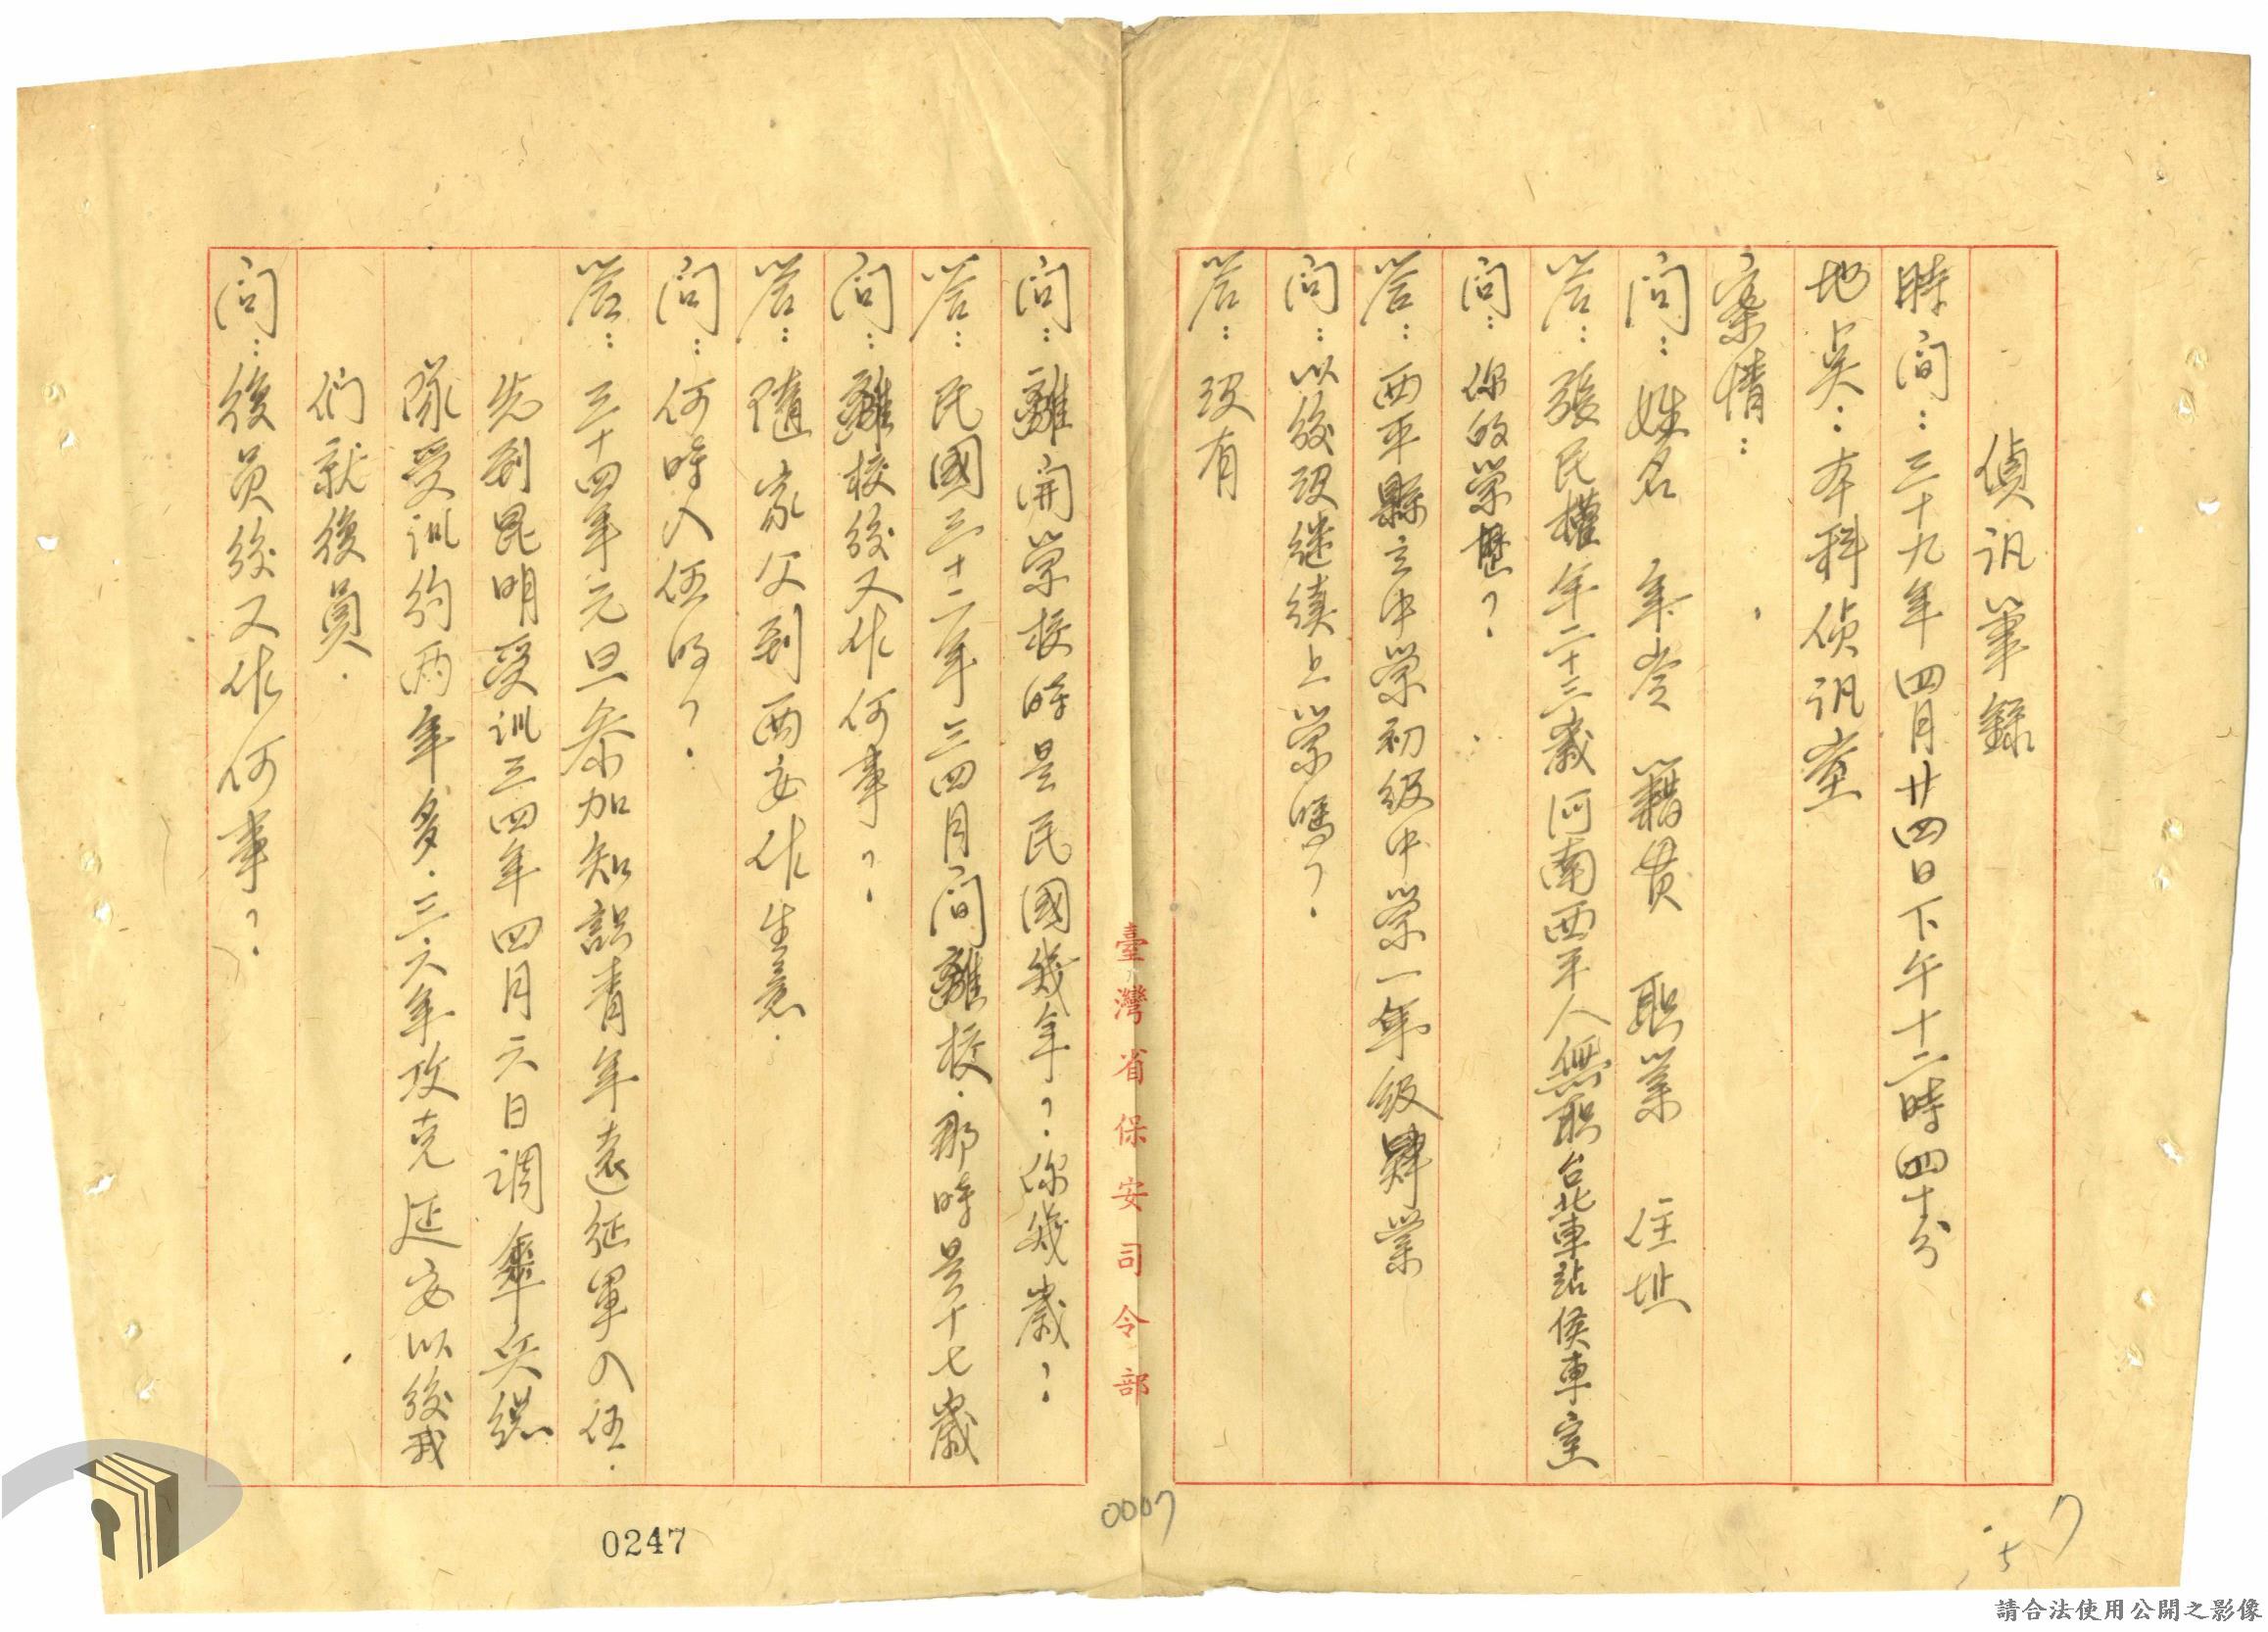 偵訊筆錄
時間：三十九年四月廿四日下午十二時四十分
地點：本科偵訊室
案情：
問：姓名 年岁 籍贯 职業 住址
答：張民權年二十三歲河南西平人無职台北車站侯車室
問：你的學歷？
答：西平縣立中學初級中學一年級肄業
問：以後没继續上學嗎？
答：没有
臺灣省保安司令部
問：離開學校時是民國幾年？你幾歲？
答：民國三十二年三四月間離校．那時是十七歲
問：離校後又作何事？
答：隨家父到西安作生意．
問：何時入伍的？
答：三十四年元旦参加知識青年遠征軍入伍．
先到昆明受訓三四年四月六日調傘兵總
隊受訓約两年多．三六年攻克延安以後我
們就復員．
問：復员後又作何事？
0247
0007
7
請合法使用公開之影像